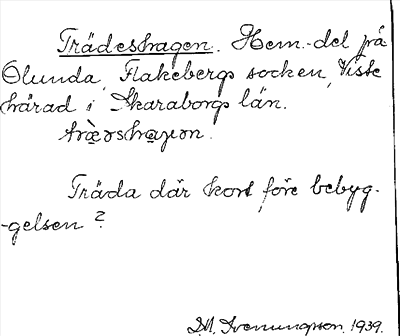 Trädeshagen. Hem.-del på
Olunda, Flakebergs socken, Viste
härad i Skaraborgs län.
trǣdshaγɷn.
Träda där kort före bebyg-
-gelsen?
D.M. Svenungsson. 1939.